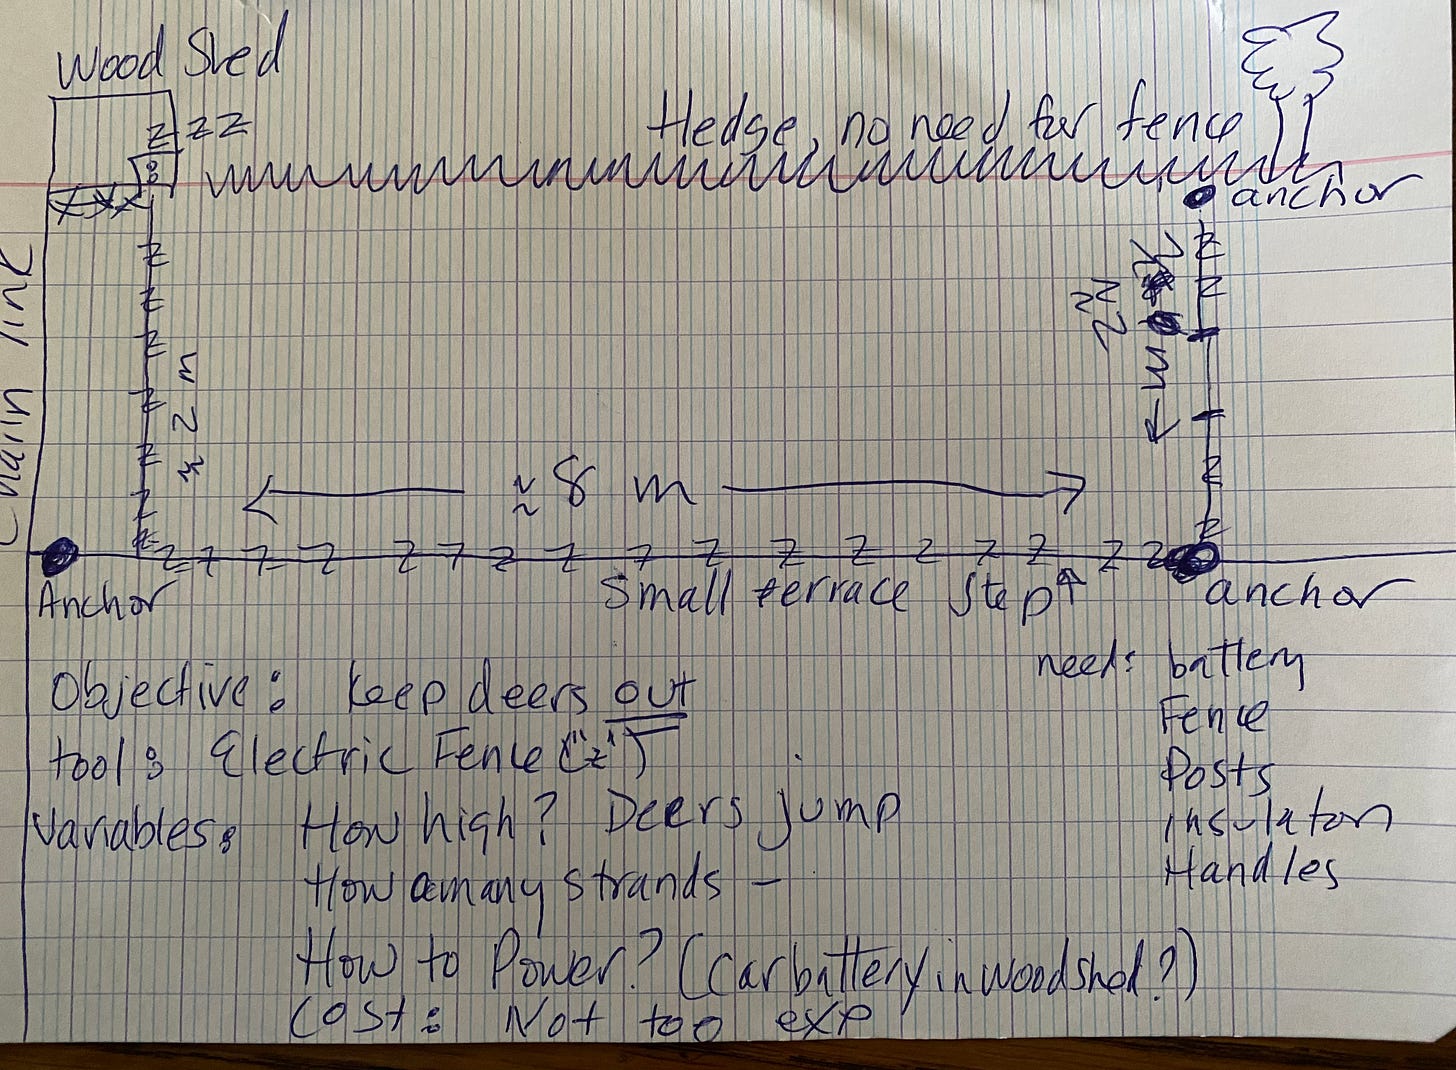 Wood Shed
z z z
Hedge, no need for fence
anchor
chain link
≈ 2 m
2N
m
≈ 8 m
Anchor
Small terrace step
anchor
Objective: keep deers out
tool: Electric Fence ("z")
Variables: How high? Deers jump
How many strands -
How to Power? (Car battery in woodshed?)
Cost: Not too exp
need: battery
Fence
Posts
insulators
Handles